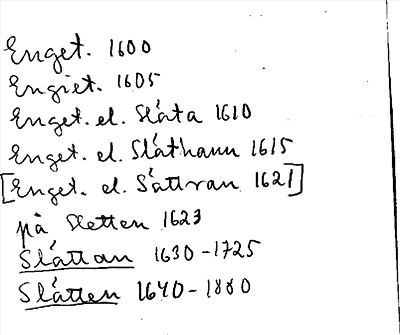 Enget. 1600
Engiet. 1605
Enget. el. Slåta 1610
Enget. el. Slåthann 1615
[Enget. el. Såttvan 1621]
på Sletten 1623
Slåttan 1630-1725
Slåtten 1640-1880